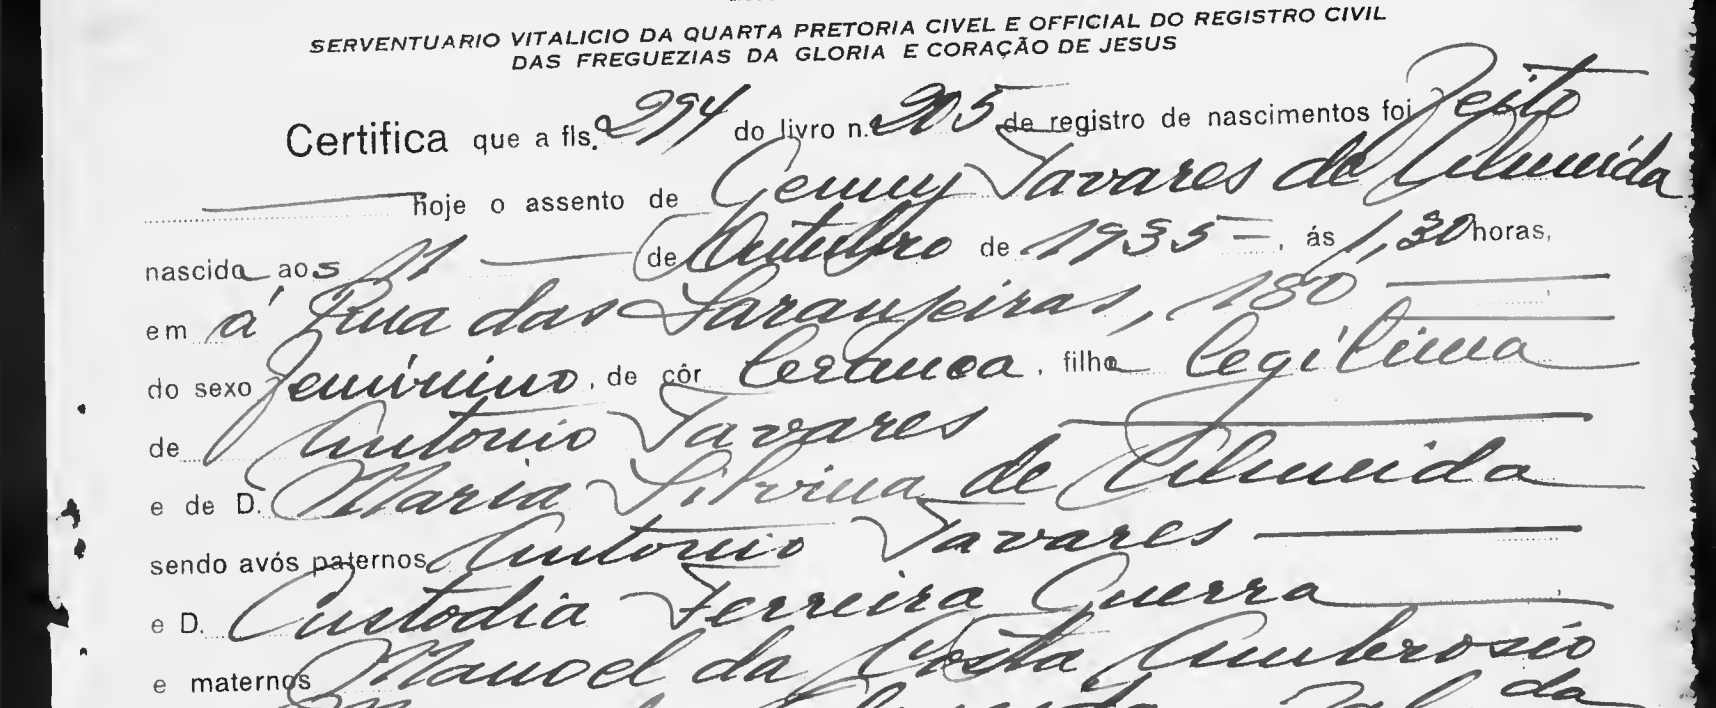 SERVENTUARIO VITALICIO DA QUARTA PRETORIA CIVEL E OFFICIAL DO REGISTRO CIVIL
DAS FREGUEZIAS DA GLORIA E CORAÇÃO DE JESUS
Certifica que a fls. 294 do livro n. 205 de registro de nascimentos foi feito
hoje o assento de Genny Tavares de Almeida
nascida aos 11 de Outubro de 1935, ás 1,30 horas,
em á Rua das Laranjeiras, 180
do sexo feminino, de côr branca, filha legitima
de Antonio Tavares
e de D. Maria Silvina de Almeida
sendo avós paternos Antonio Tavares
e D. Custodia Ferreira Guerra
e maternos Manoel da Costa Ambrosio
da